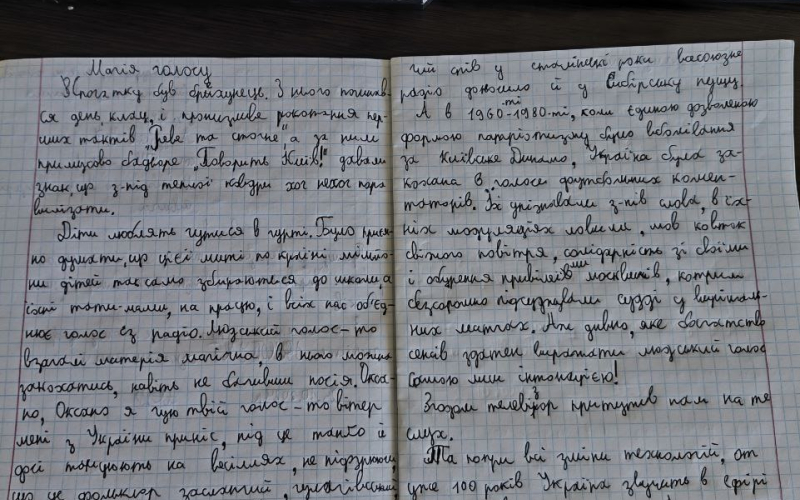 Магія голосу
Спочатку був брехунець. З нього починав-
ся день кладу, і пронизливе рокотання пер-
ших тактів "Реве та стогне", а за ним
примусово бадьоре "Говорить Київ!" давали
знак, що з-під теплої ковдри хоч нехоч пора
вилізати.
Діти люблять гутися в гурті. Було приєм-
но думати, що цієї миті по країні мільйо-
ни дітей так само збираються до школи, а
їхні тати-мами, на працю, і всіх нас об'єд-
нює голос із радіо. Людський голос – то
взагалі матерія магічна, в нього можна
закохатись, навіть не бачивши носія. Окса-
но, Оксано я чую твій голос – то вітер
мені з України приніс, під це танго й
досі танцюють на весіллях, не підозрюючи,
що це фольклор засланчий, гулагівський
чий спів у сталінські роки всесоюзне
радіо доносило й у Сибірську пущу.
А в 1960-ті-1980-ті, коли єдиною дозволеною
формою патріотизму було вболівання
за Київське Динамо, Україна була за-
кохана в голоси футбольних комен-
таторів. Їх упізнавали з-пів слова, в їх-
ніх модуляціях ловили, мов ковток
свіжого повітря, солідарність зі своїми
і обурення привілейованими москвичів, котрим
безсоромно підсуджували судді у вирішаль-
них матчах. Аж дивно, яке багатство
сенсів здатен виражати людський голос
самою лиш інтонацією!
Згодом телевізор притупив нам на те
слух.
Та попри всі зміни технологій, от
уже 100 років Україна звучить в ефірі